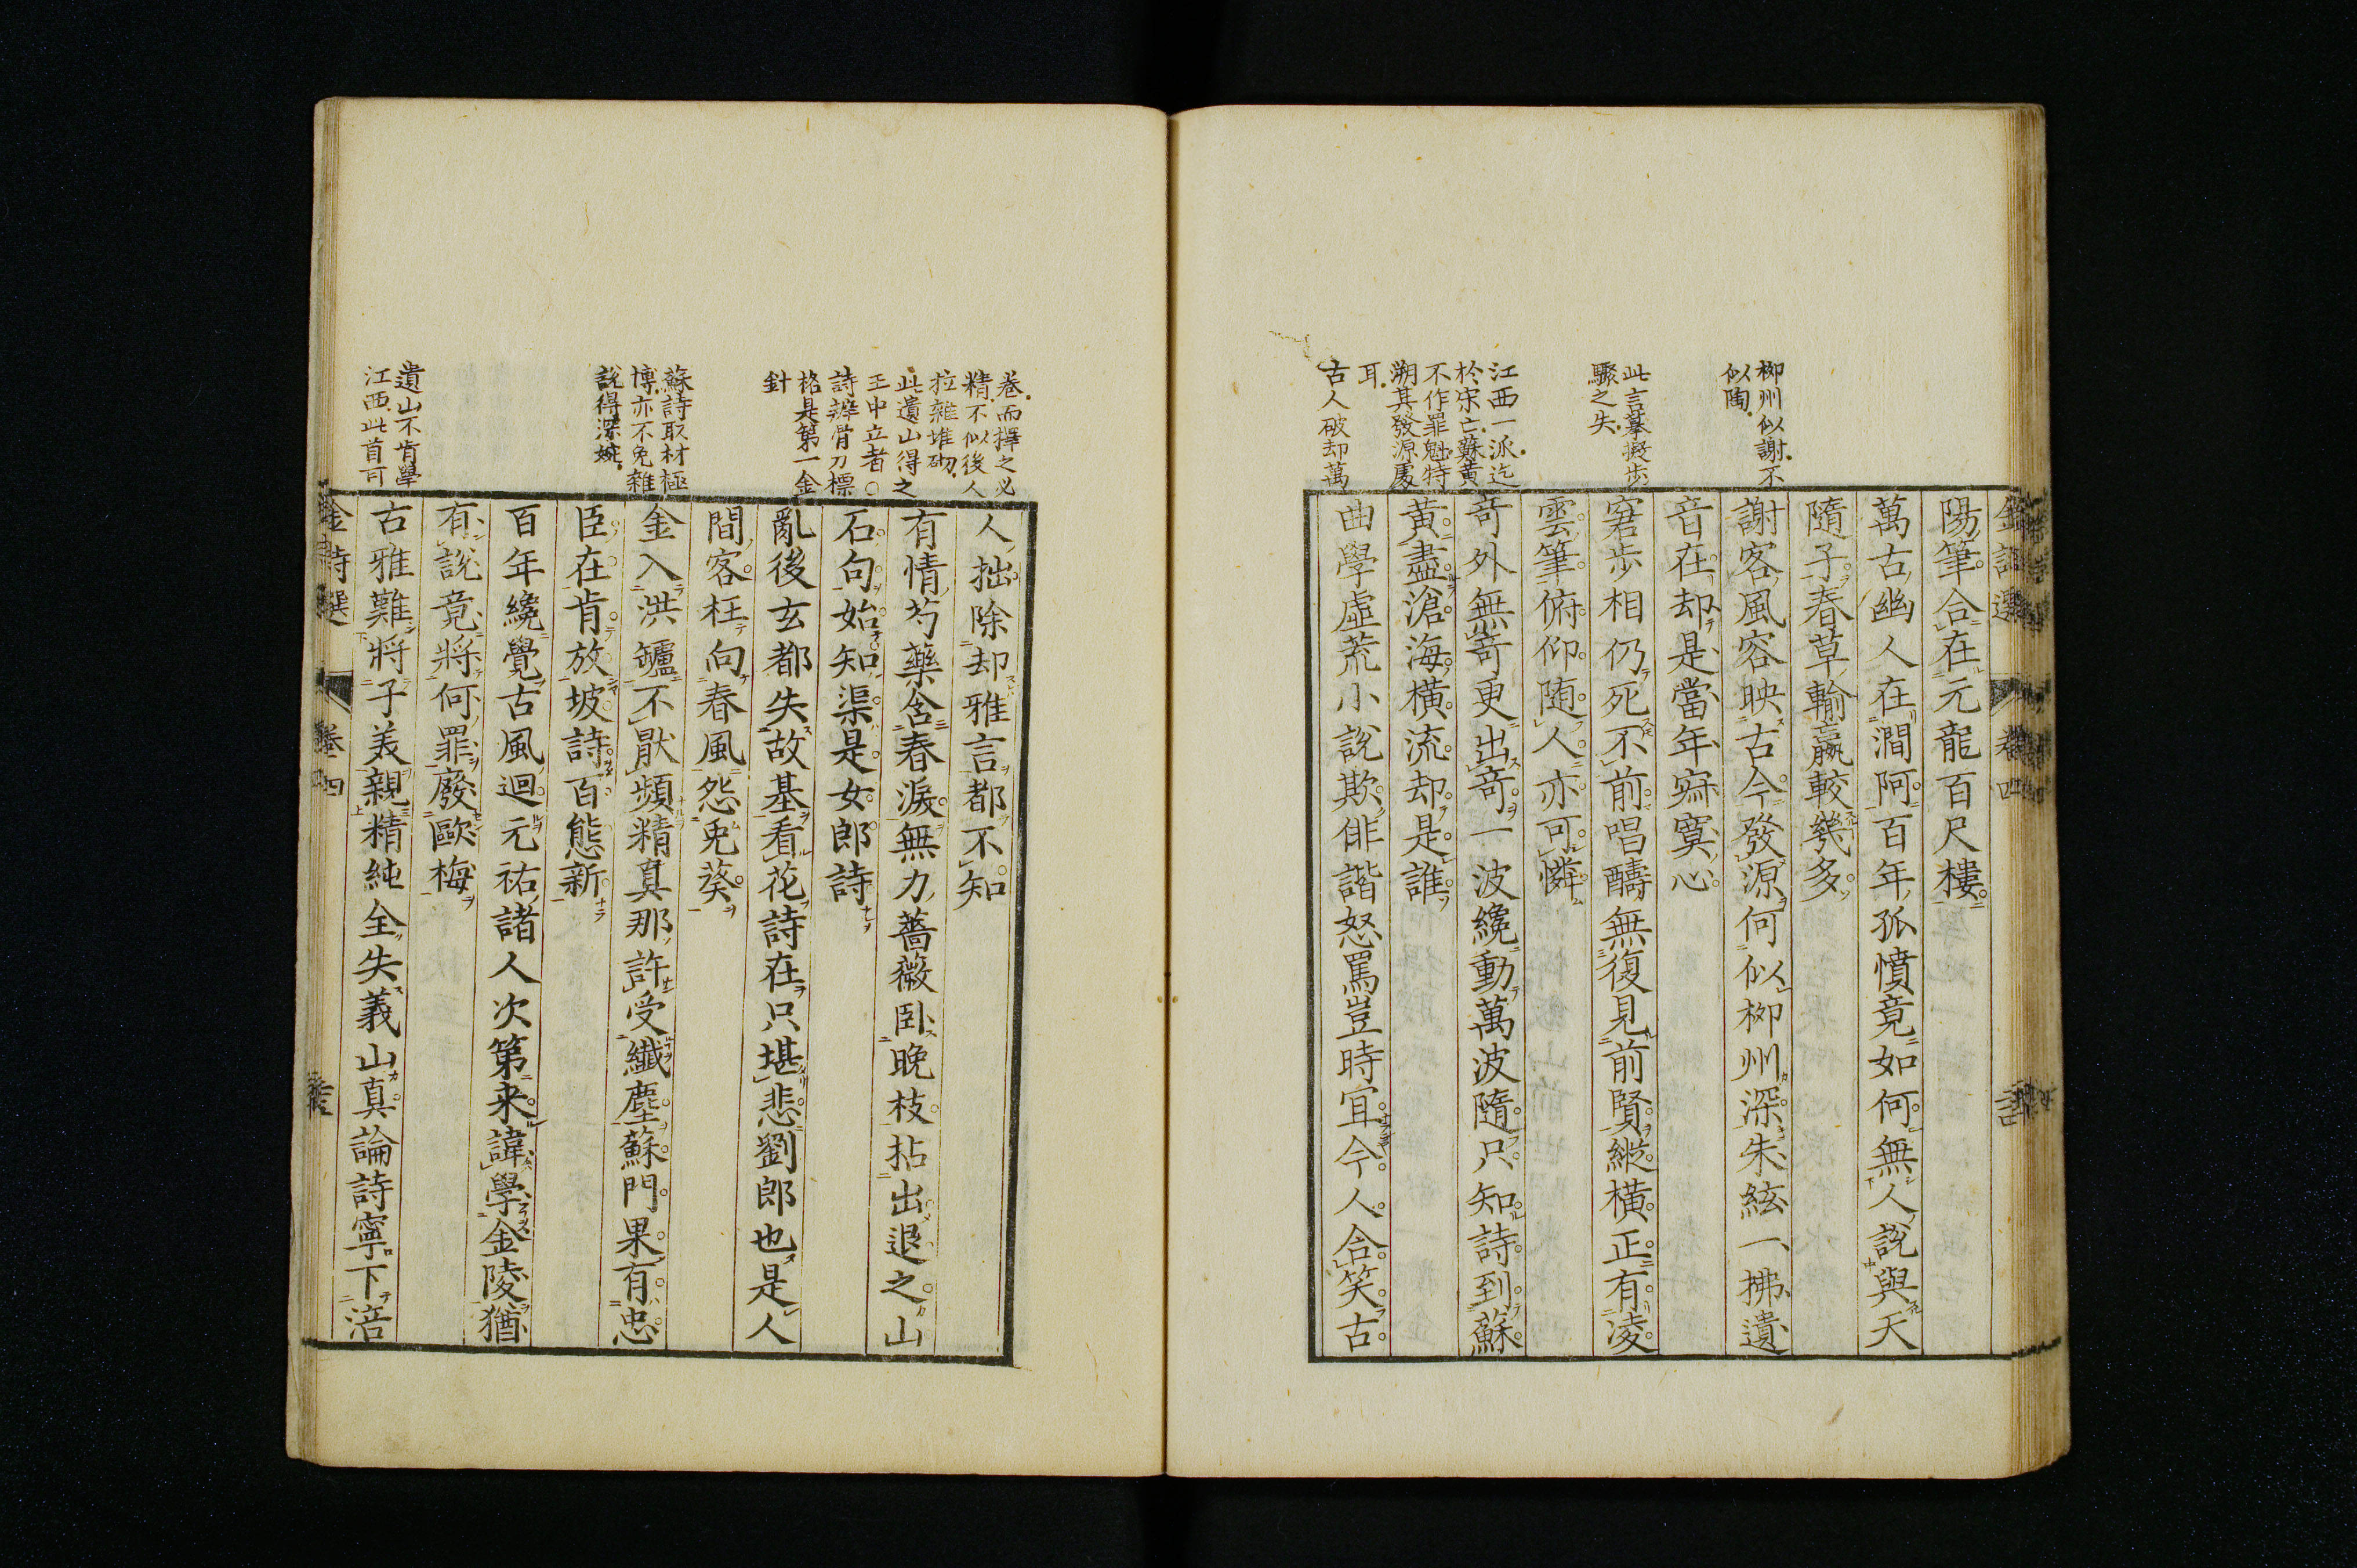 柳州似謝不
似陶
此言摹擬步
驟之失
江西一派迄
於宋亡蘇黃
不作罪魁特
溯其發源處
耳
古人破却萬
陽筆合在元龍百尺樓
萬古幽人在澗阿百年孤憤竟如何無人說與天
隨子春草輸贏較幾多
謝客風容映古今發源何似柳州深朱絃一拂遺
音在却是當年寂寞心
窘步相仍死不前唱醻無復見前賢縱橫正有凌
雲筆俯仰随人亦可憐
奇外無奇更出奇一波纔動萬波隨只知詩到蘇
黃盡滄海橫流却是誰
曲學虛荒小說欺俳諧怒罵豈時宜今人合笑古
卷而擇之必
精不似後人
拉雜堆砌
此遺山得之
王中立者〇
詩辨骨刀標
格是第一金
針
蘇詩取材極
博亦不免雜
說得深婉
遺山不肯學
江西此首可
人拙除却雅言都不知
有情芍藥含春淚無力薔薇卧晚枝拈出退之山
石句始知渠是女郎詩
亂後玄都失故基看花詩在只堪悲劉郎也是人
間客枉向春風怨兎葵
金入洪罏不厭頻精真那許受纖塵蘇門果有忠
臣在肯放坡詩百態新
百年纔覺古風迴元祐諸人次第来諱學金陵猶
有說竟將何罪廢歐梅
古雅難將子美親精純全失義山真論詩寧下涪
金詩選 卷四